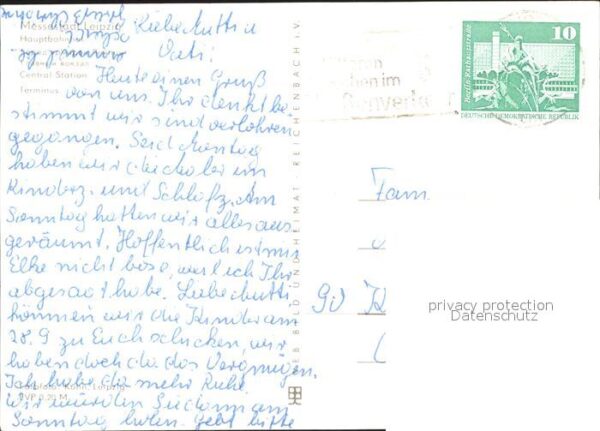 Liebe Mutti u
Vati!
Heute einen Gruß
von uns. Ihr denkt be-
stimmt wir sind verlohren
gegangen. Seid Montag
haben wir die Maler im
Kinderz. und Schlafz. Am
Sonntag hatten wir alles aus
geräumt. Hoffentlich ist mir
Elke nicht böse, weil ich Ihr
abgesagt habe. Liebe Mutti
können wir die Kinder am
28.9 zu Euch schicken, wir
haben doch da das Vergnügen.
Ich habe da mehr Ruhe.
Wir würden Sie dann am
Sonntag holen. Gebt bitte
Messestadt Leipzig
Hauptbahnhof
Central Station
Terminus
VEB BILD UND HEIMAT · REICHENBACH i.V.
Leipzig
10
Berlin, Rathausstraße
DEUTSCHE DEMOKRATISCHE REPUBLIK
Fam
privacy protection
Datenschutz